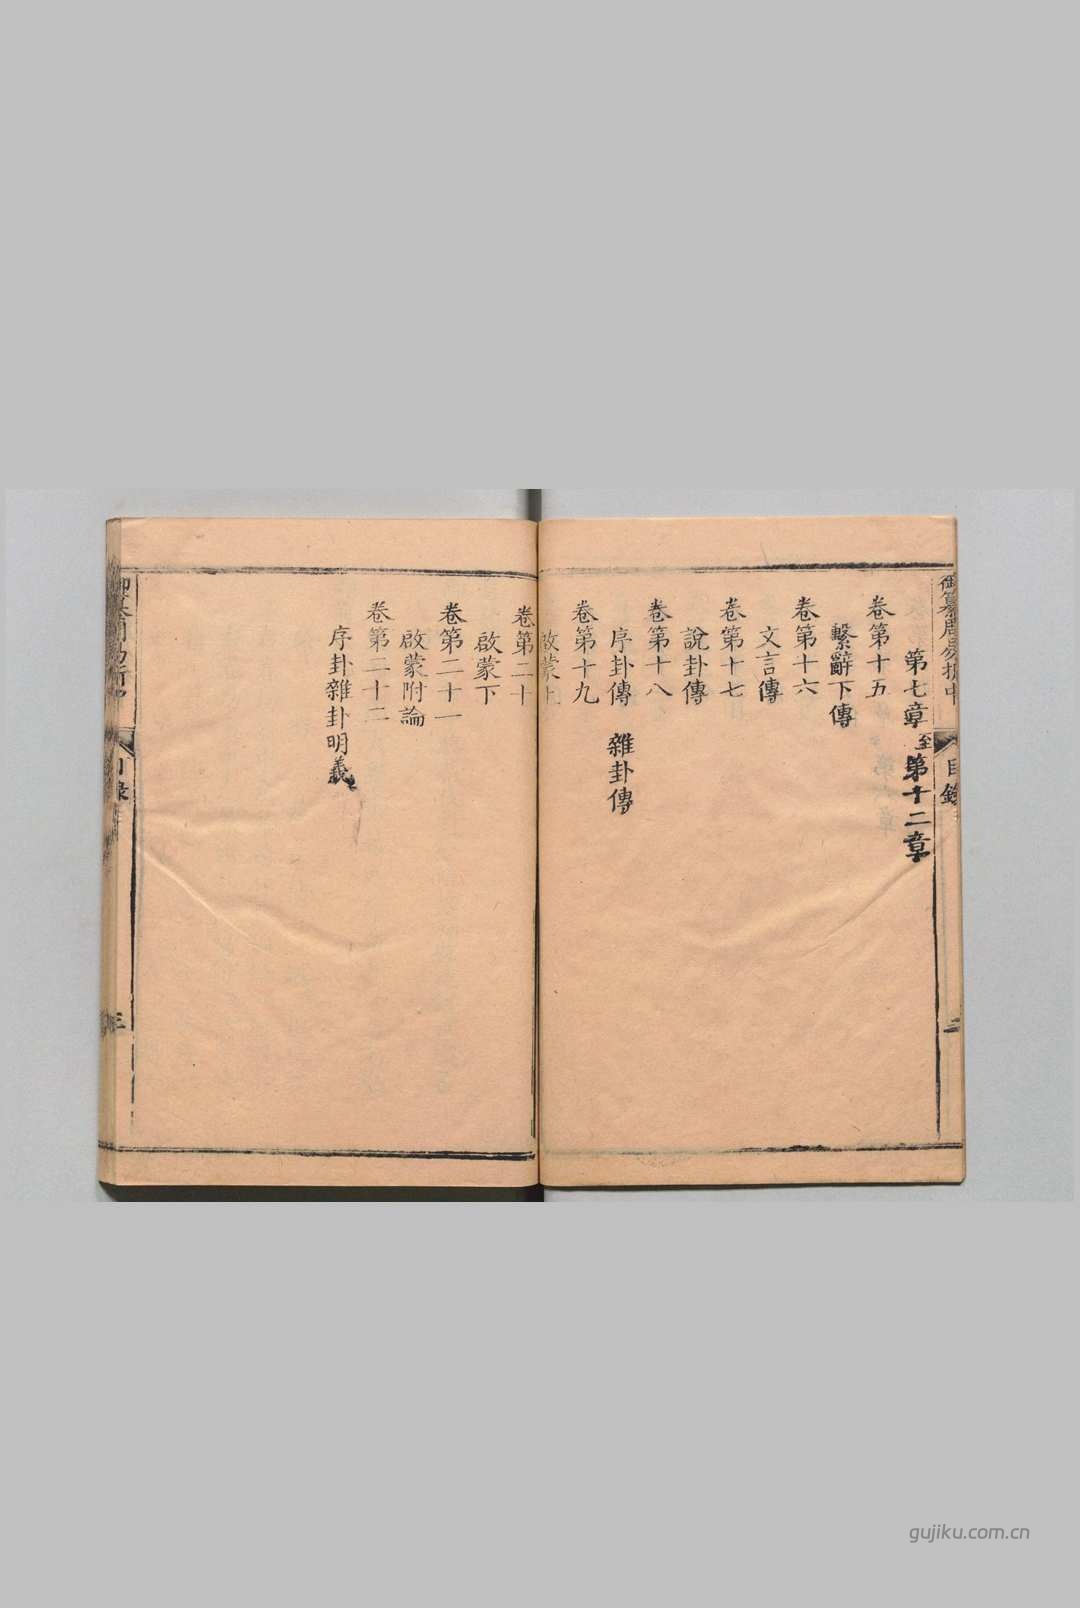 御纂周易折中
目錄
第七章至第十二章
卷第十五
繫辭下傳
卷第十六
文言傳
卷第十七
說卦傳
卷第十八
序卦傳 雜卦傳
卷第十九
啟蒙上
卷第二十
啟蒙下
卷第二十一
啟蒙附論
卷第二十二
序卦雜卦明義
目錄
三
gujiku.com.cn